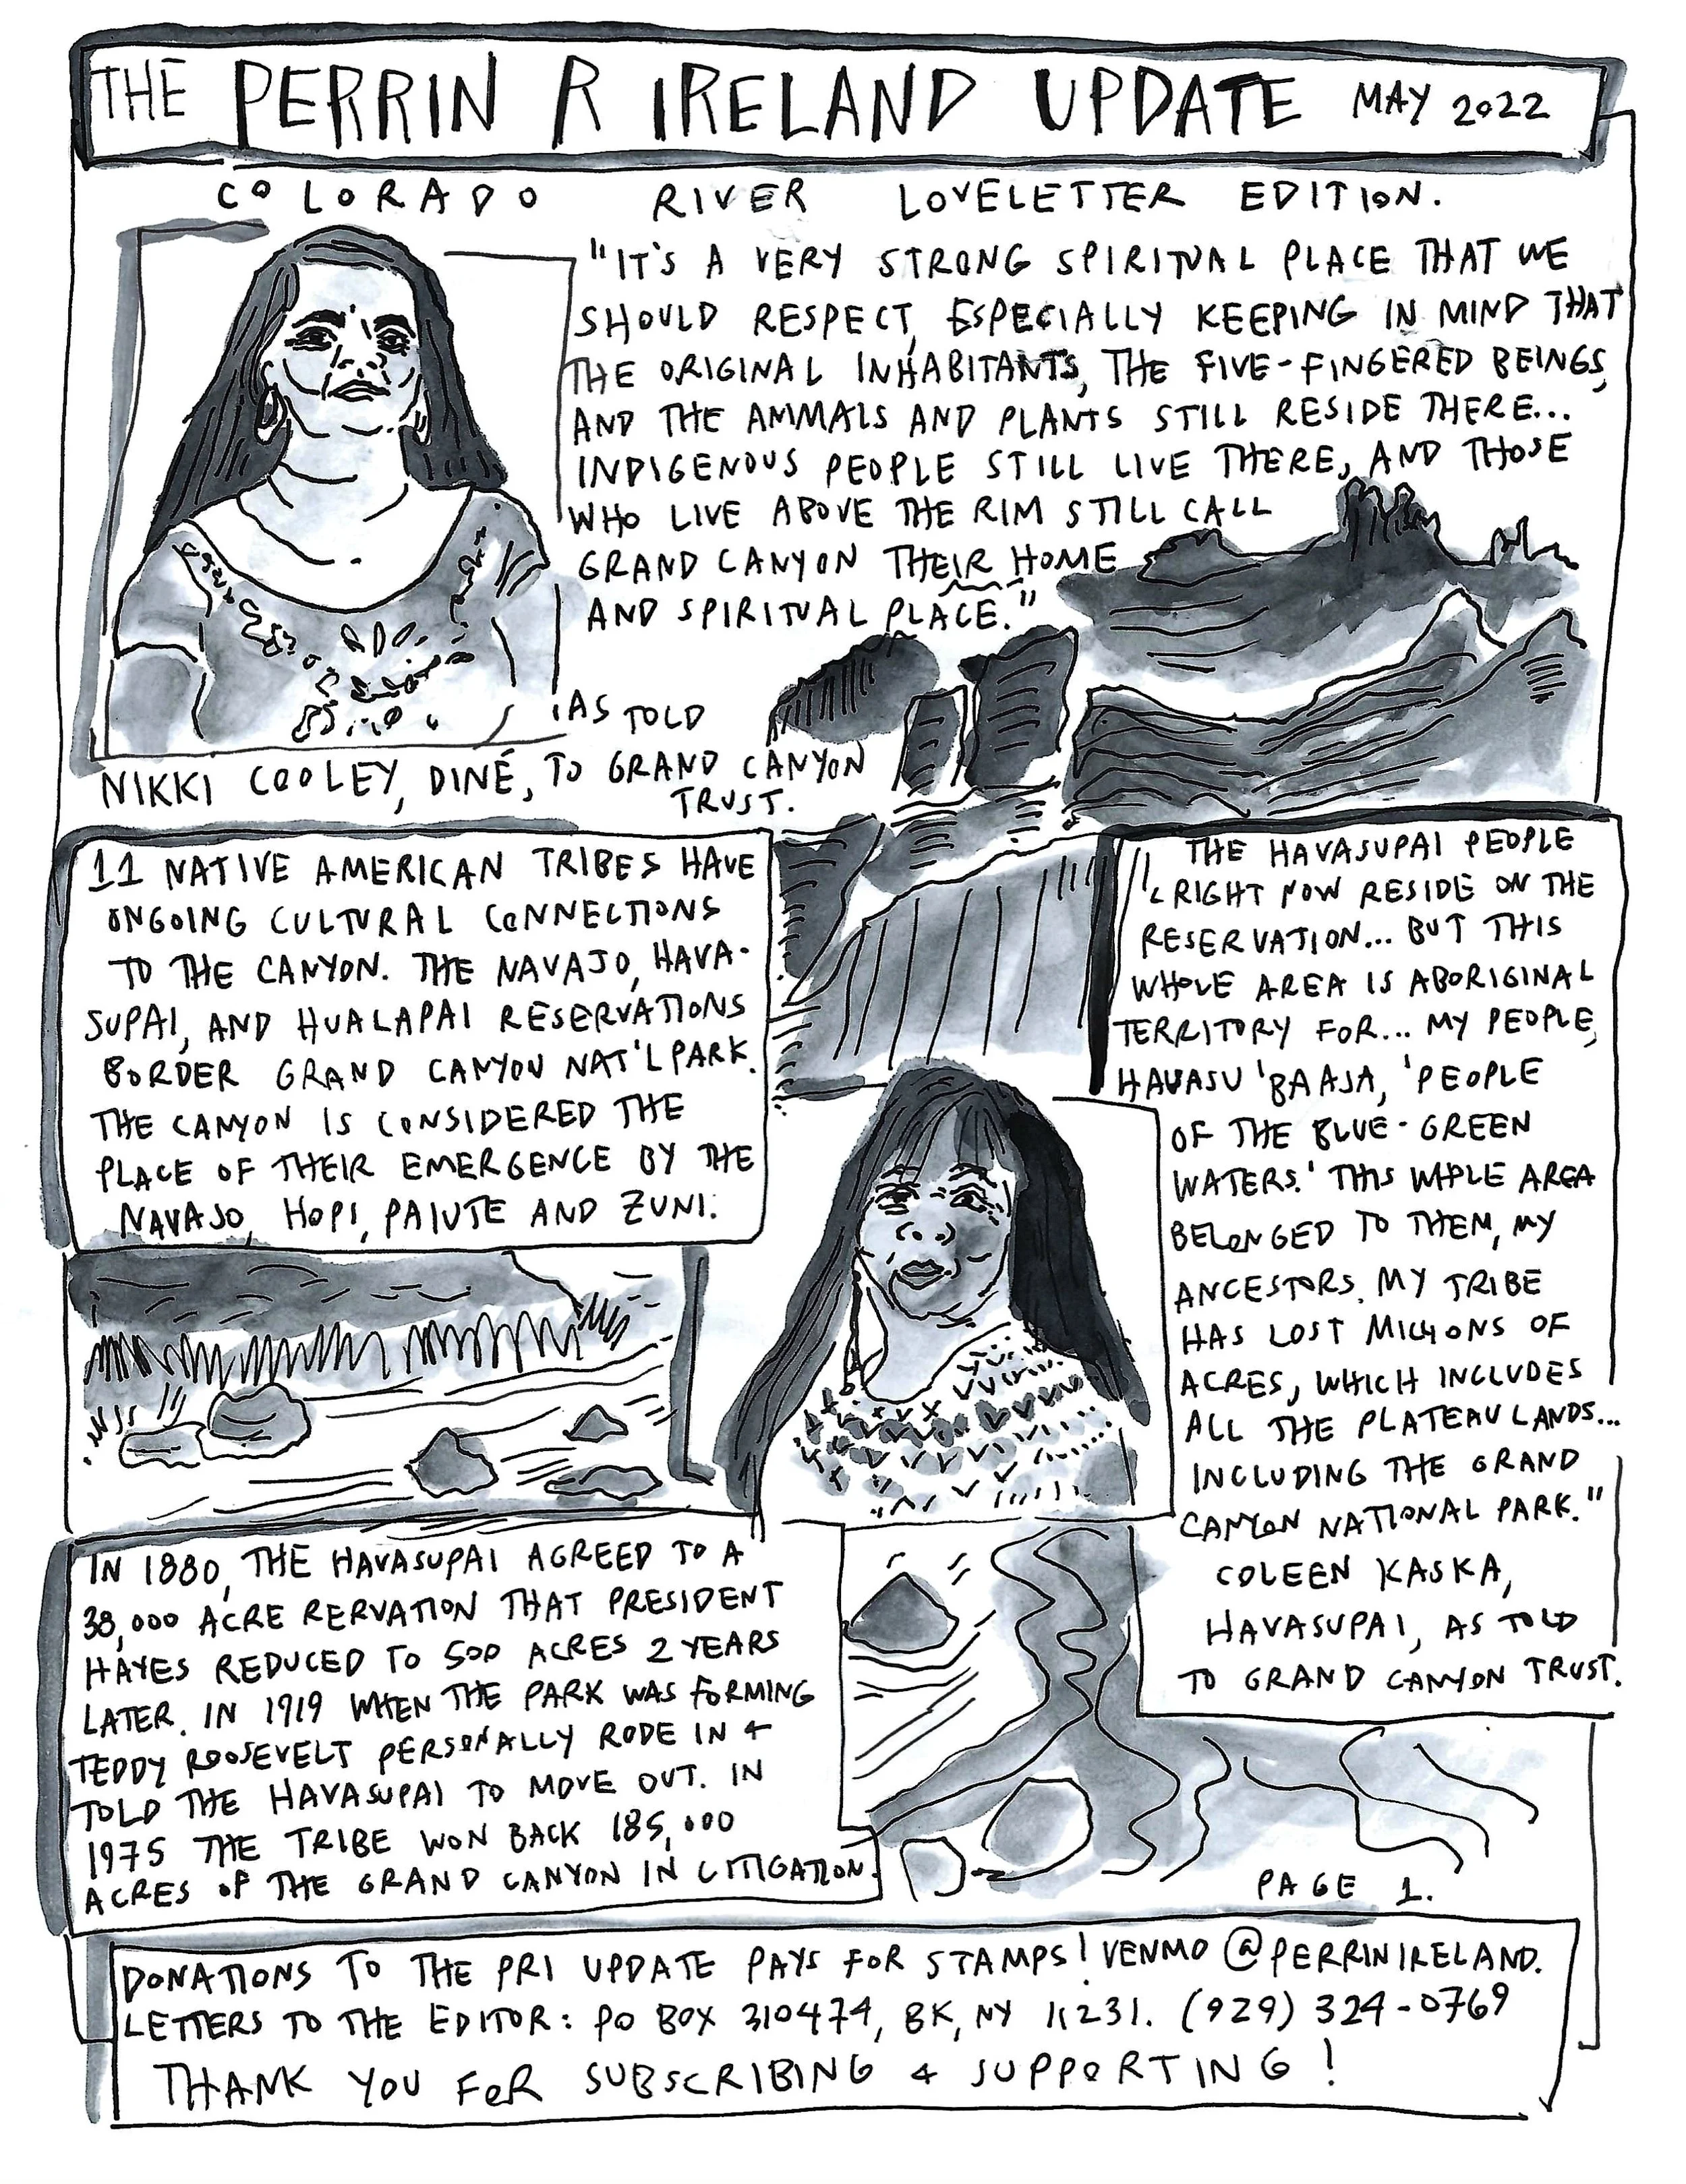 THE PERRIN R IRELAND UPDATE MAY 2022
COLORADO RIVER LOVELETTER EDITION.
"IT'S A VERY STRONG SPIRITUAL PLACE THAT WE
SHOULD RESPECT, ESPECIALLY KEEPING IN MIND THAT
THE ORIGINAL INHABITANTS, THE FIVE-FINGERED BEINGS,
AND THE ANIMALS AND PLANTS STILL RESIDE THERE...
INDIGENOUS PEOPLE STILL LIVE THERE, AND THOSE
WHO LIVE ABOVE THE RIM STILL CALL
GRAND CANYON THEIR HOME
AND SPIRITUAL PLACE."
AS TOLD
NIKKI COOLEY, DINÉ, TO GRAND CANYON
TRUST.
11 NATIVE AMERICAN TRIBES HAVE
ONGOING CULTURAL CONNECTIONS
TO THE CANYON. THE NAVAJO, HAVA-
SUPAI, AND HUALAPAI RESERVATIONS
BORDER GRAND CANYON NAT'L PARK.
THE CANYON IS CONSIDERED THE
PLACE OF THEIR EMERGENCE BY THE
NAVAJO, HOPI, PAIUTE AND ZUNI.
"THE HAVASUPAI PEOPLE
RIGHT NOW RESIDE ON THE
RESERVATION... BUT THIS
WHOLE AREA IS ABORIGINAL
TERRITORY FOR... MY PEOPLE,
HAVASU 'BAAJA, 'PEOPLE
OF THE BLUE-GREEN
WATERS.' THIS WHOLE AREA
BELONGED TO THEM, MY
ANCESTORS. MY TRIBE
HAS LOST MILLIONS OF
ACRES, WHICH INCLUDES
ALL THE PLATEAU LANDS...
INCLUDING THE GRAND
CANYON NATIONAL PARK."
COLEEN KASKA,
HAVASUPAI, AS TOLD
TO GRAND CANYON TRUST.
IN 1880, THE HAVASUPAI AGREED TO A
38,000 ACRE RERVATION THAT PRESIDENT
HAYES REDUCED TO 500 ACRES 2 YEARS
LATER. IN 1919 WHEN THE PARK WAS FORMING
TEDDY ROOSEVELT PERSONALLY RODE IN &
TOLD THE HAVASUPAI TO MOVE OUT. IN
1975 THE TRIBE WON BACK 185,000
ACRES OF THE GRAND CANYON IN LITIGATION.
PAGE 1.
DONATIONS TO THE PRI UPDATE PAYS FOR STAMPS! VENMO @PERRINIRELAND.
LETTERS TO THE EDITOR: PO BOX 310474, BK, NY 11231. (929) 324-0769
THANK YOU FOR SUBSCRIBING & SUPPORTING!